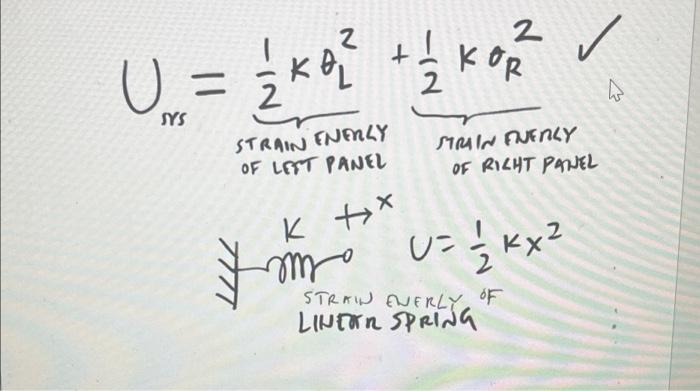 U_sys = 1/2 K θ_L^2 + 1/2 K θ_R^2 ✓
STRAIN ENERGY OF LEFT PANEL
STRAIN ENERGY OF RIGHT PANEL
K x
U = 1/2 K x^2
STRAIN ENERGY OF
LINEAR SPRING